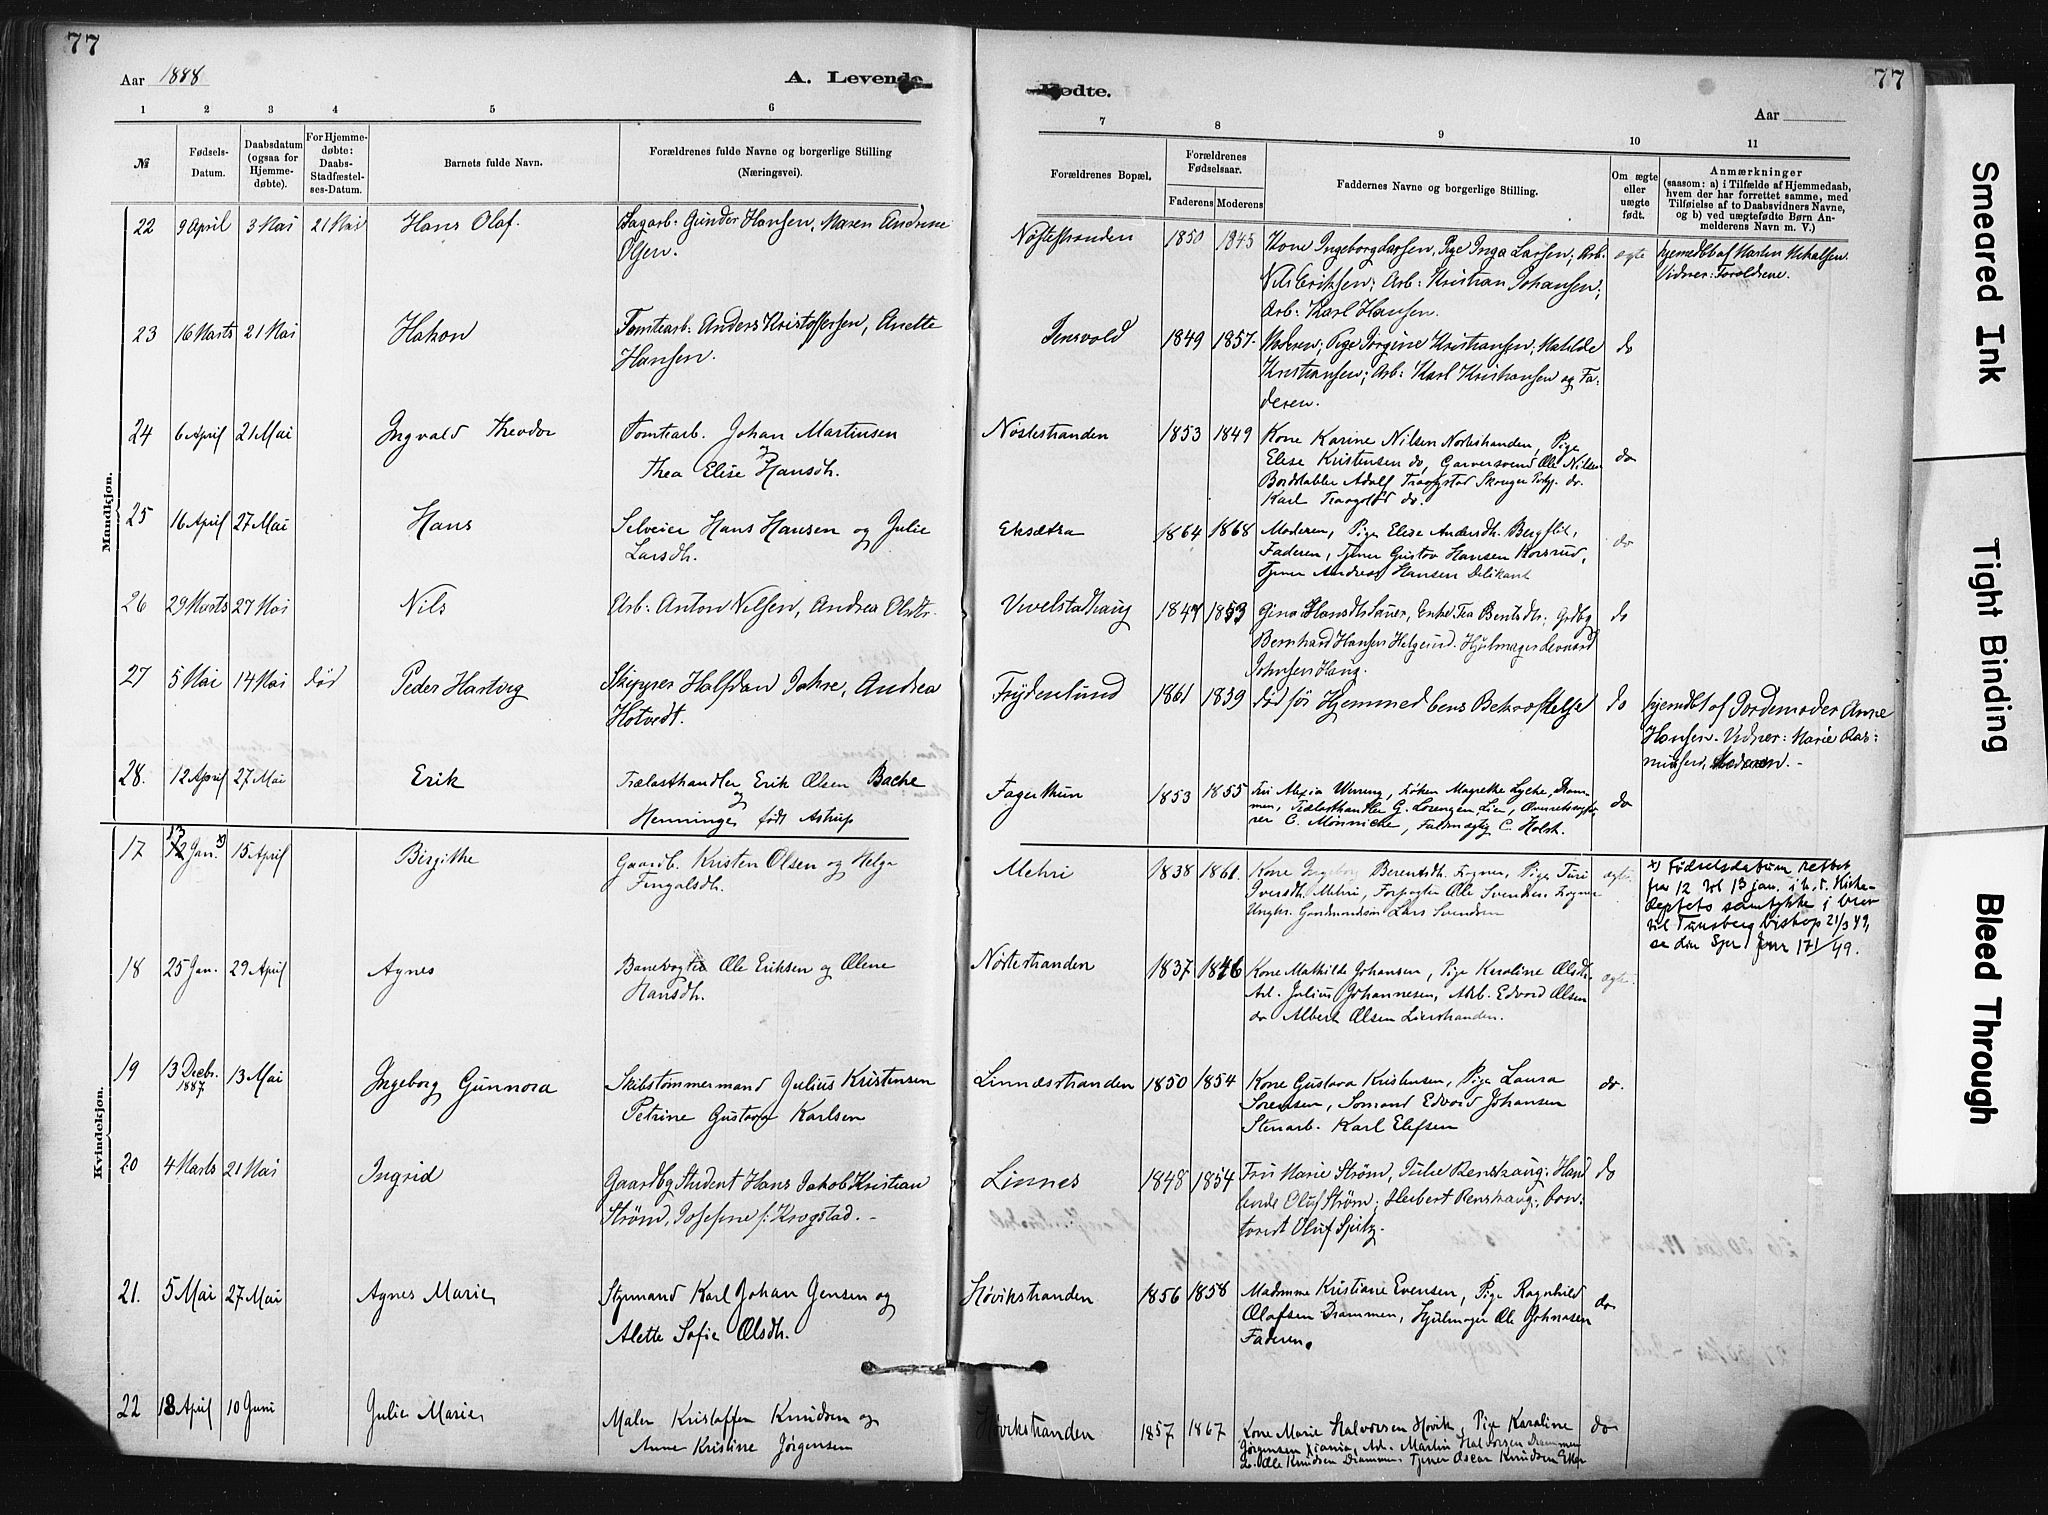 77
Aar 1888
A. Levende
1 2 3 4 5 6
№
Fødsels-Datum.
Daabsdatum (ogsaa for Hjemme-døbte).
For Hjemme-døbte: Daabs-Stadfæstel-ses-Datum.
Barnets fulde Navn.
Forældrenes fulde Navne og borgerlige Stilling
(Næringsvei).
Mandkjøn.
22 9 April 3 Mai 21 Mai Hans Olaf. Sagarb: Gunder Hansen, Maren Andrine
Olsen.
23 16 Marts 21 Mai Hakon Tomtearb: Anders Kristoffersen, Anette
Hansen.
24 6 April 21 Mai Ingvald Theodor Tomtearb. Johan Martinsen
og
Thea Elise Hansdh.
25 16 April 27 Mai Hans Selveier Hans Hansen og Julie
Larsdh.
26 29 Marts 27 Mai Nils Arb: Anton Nilsen, Andrea Olsdtr.
27 5 Mai 14 Mai død Peder Hartvig Skipper Halfdan Jahre, Andrea
Hotvedt.
28. 12 April 27 Mai Erik Trælasthandler Erik Olsen Bache
og
Henninge født Astrup
Kvindekjøn.
17 13 Jan. x) 15 April Birgitte Gaardb. Kristen Olsen og Helga
Fingalsdh.
18 25 Jan. 29 April Agnes Banevogter Ole Eriksen og Olene
Hansdh.
19 13 Decbr. 1887 13 Mai Ingeborg Gunnora Skibstømmermand Julius Kristensen
Petrine Gustava Karlsen
20 4 Marts 21 Mai Ingrid Gaardbg Student Hans Jakob Kristian
Strøm, Josefine f: Krogstad.
21. 5 Mai 27 Mai Agnes Marie Styrmand Karl Johan Jensen og
Alette Sofie Olsdh.
22 18 April 10 Juni Julie Marie Maler Kristoffen Knudsen og
Anne Kristine Jørgensen
77
Fødte.
Aar
7 8 9 10 11
Forældrenes Bopæl.
Forældrenes Fødselsaar.
Faderens Moderens
Faddernes Navne og borgerlige Stilling.
Om ægte eller uægte født.
Anmærkninger
(saasom: a) i Tilfælde af Hjemmedaab,
hvem der har forrettet samme, med
Tilføielse af to Daabsvidners Navne,
og b) ved uægtefødte Børn An-
melderens Navn m. V.)
Nøstestranden 1850 1845 Kone Ingeborg Larsen, Pige Inga Larsen; Arb. ægte hjemedbt af Martin Mikalsen.
Nils Eriksen; Arb: Kristian Johansen; Vidner: Forældrene.
Arb: Karl Hansen.
Jensvold 1849 1857. Moderen; Pige Jørgine Kristiansen; Matilde do
Kristiansen; Arb: Karl Kristiansen og Fa-
deren.
Nøstestranden 1853 1849 Kone Karine Nilsen Nøstestranden, Pige do
Elise Kristensen do, Garversvend Ole Nilsen
Bordstabler Adolf Traagstad Skouger
Karl Traagstad do.
Eksætra 1864 1868 Moderen, Pige Elise Andersdh. Bergflit, do
Faderen, Tjener Gustav Hansen Korsrud,
Tjener Andreas Hansen Delikant
Vivelstadhaug 1847 1853 Gina Hansdtr Sauer, Enke Tea Bentsdtr; Grdbg do
Bernhard Hansen Helgerud. Hjulmager
Johnsen Haug.
Frydenlund 1861 1859 død før Hjemmedåbens Bekræftelse do hjemdbt af Jordemoder Anne
Hansen. Vidner: Marie Ras-
mussen, Moderen.
Fagertun 1853 1855 do
C. Mønniche, Fuldmægtig C. Holst.
Mehri 1838 1861. Kone Ingeborg Berentsdh. Fogner, Pige Turi ægte.
Iversdh. Mehri, Forpagter Ole Svendsen Fogner
Ungkr. Gaardmandssøn Lars Svendsen
x) Fødselsdatum rettet
fra 12 til 13 jan. i h. t. Kirke-
deptets samtykke i brev
til Tunsberg biskop 21/3 49,
se din Spr Jour 171/49.
Nøstestranden 1837 1846 Kone Mathilde Johansen, Pige Karoline Olsdh. ægte.
Arb. Julius Johannesen, Arb. Edvard Olsen
do Albert Olsen Lierstranden.
Linnesstranden 1850 1854 Kone Gustava Kristensen, Pige Laura do.
Sørensen, Sømand Edvard Johansen
Stenarb. Karl Elefsen
Linnes 1848 1854 Fru Marie Strøm, Julie Renskaug; Hand- do
lende Oluf Strøm; Herbert Renskaug; Con-
torist Oluf Spitz.
Høvikstranden 1856 1858 Madamme Kristiane Evensen, Pige Ragnhild do
Olafsen Drammen, Hjulmager Ole Johnasen
Faderen.
Høvikstranden 1857 1867 Kone Marie Halvorsen Høvik, Pige Karoline do
Jørgensen Xiania, Arb. Martin Halvorsen Drammen
Ole Knudsen Drammen. Tjener Oscar Knudsen Eker
Smeared Ink
Tight Binding
Bleed Through